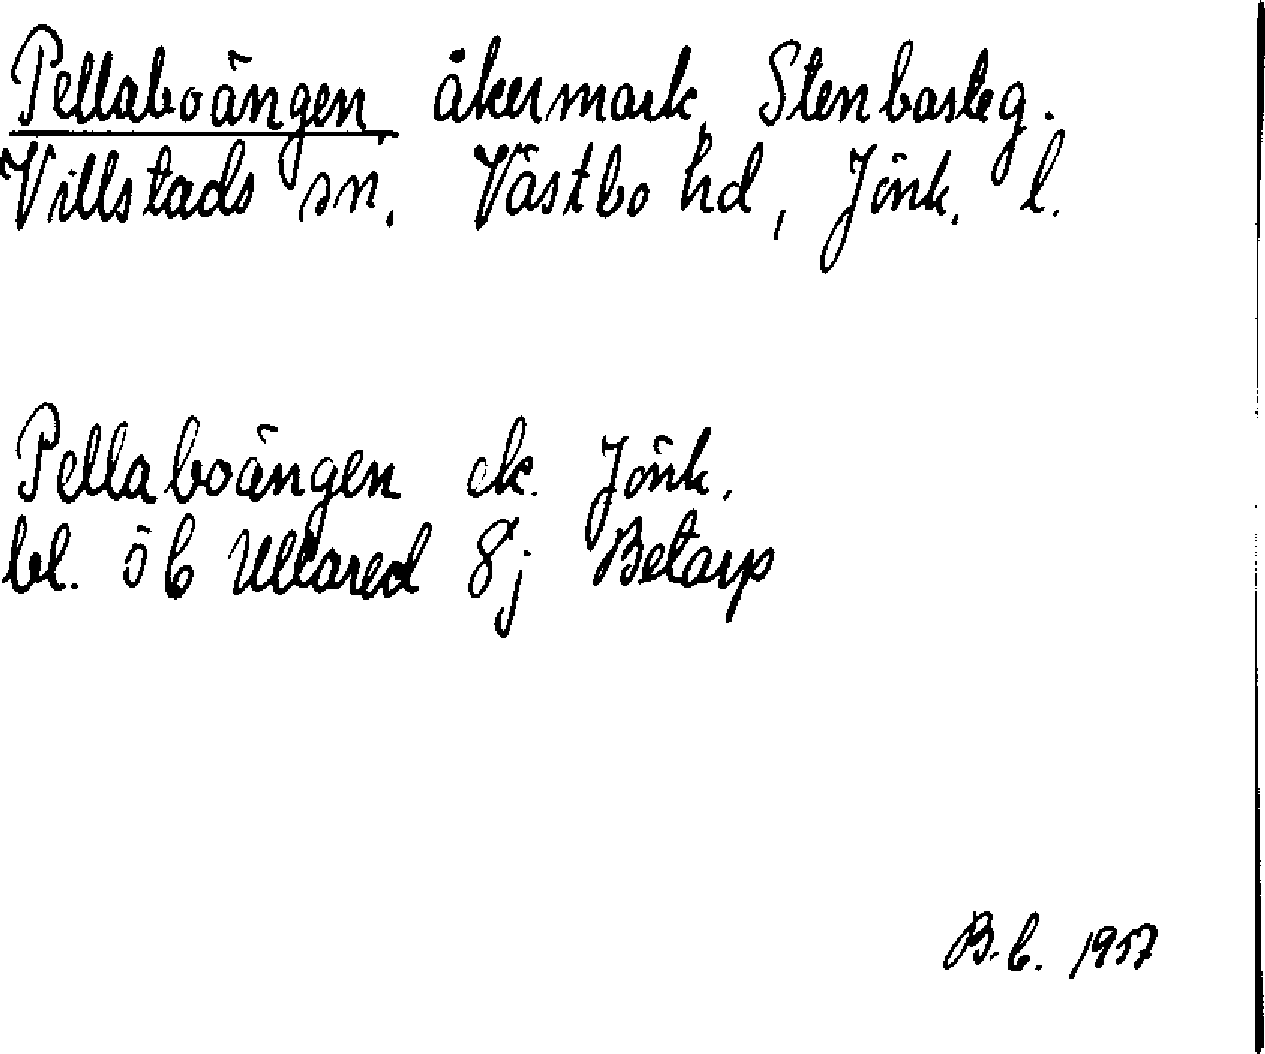 Pellaboängen, åkermark, Stenbasteg.
Villstads sn. Västbo hd, Jönk. l.
Pellaboängen ek. Jönk.
bl. ö 6 Ullared 8j Betarp
B.b. 1957